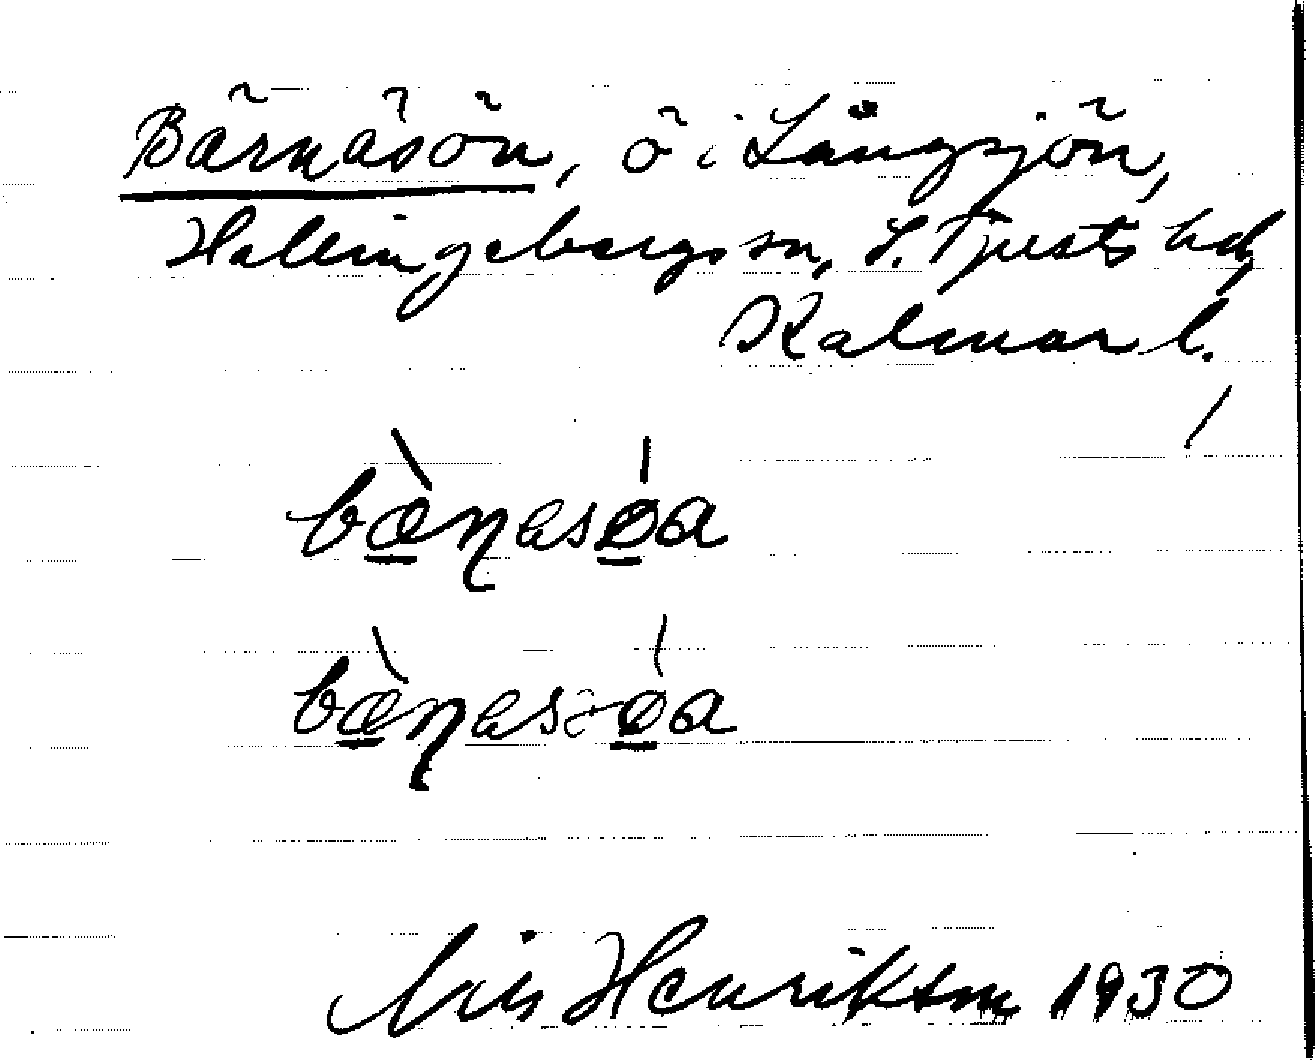 Bärnäsön, ö i Långsjön,
Hallingebergs sn, S. Tjusts hd,
Kalmar l.
bæ̀ɳasǿa
Nils Henrikson 1930